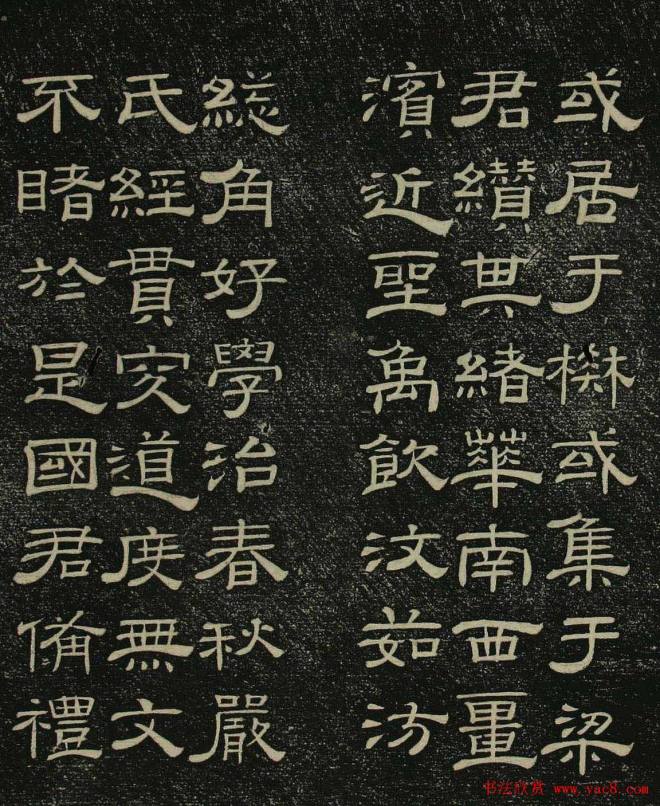 或居于楚或集于梁
君纘其緒華南西畺
濱近聖禹飲汶茹汸
緫角好學治春秋嚴
氏經貫究道度無文
不睹於是國君備禮
书法欣赏 www.yac8.com